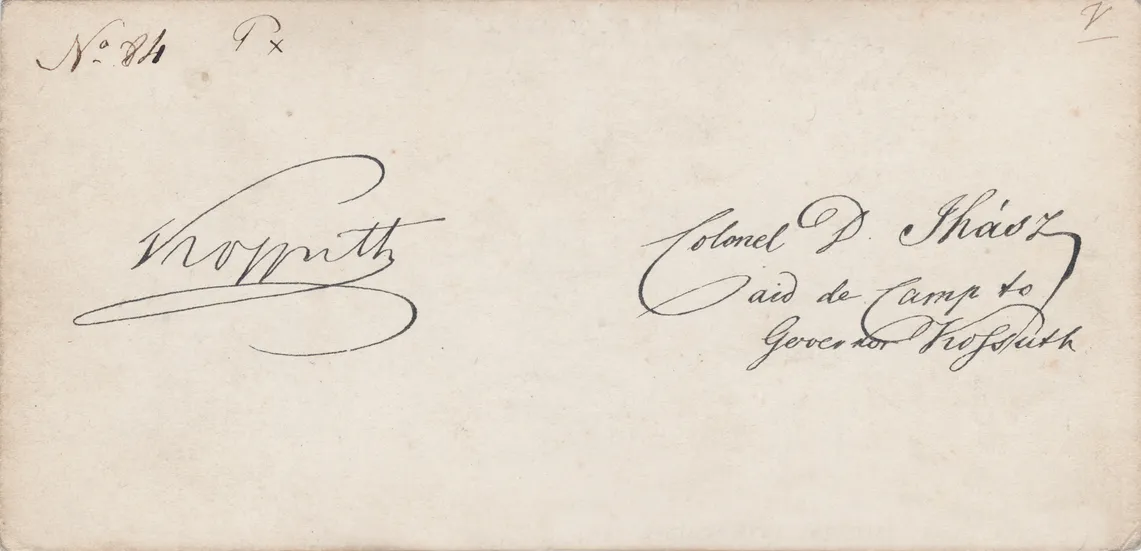 Nº 84 Px
V
Kossuth
Colonel D. Ihász
aid de Camp to
Governor Kossuth